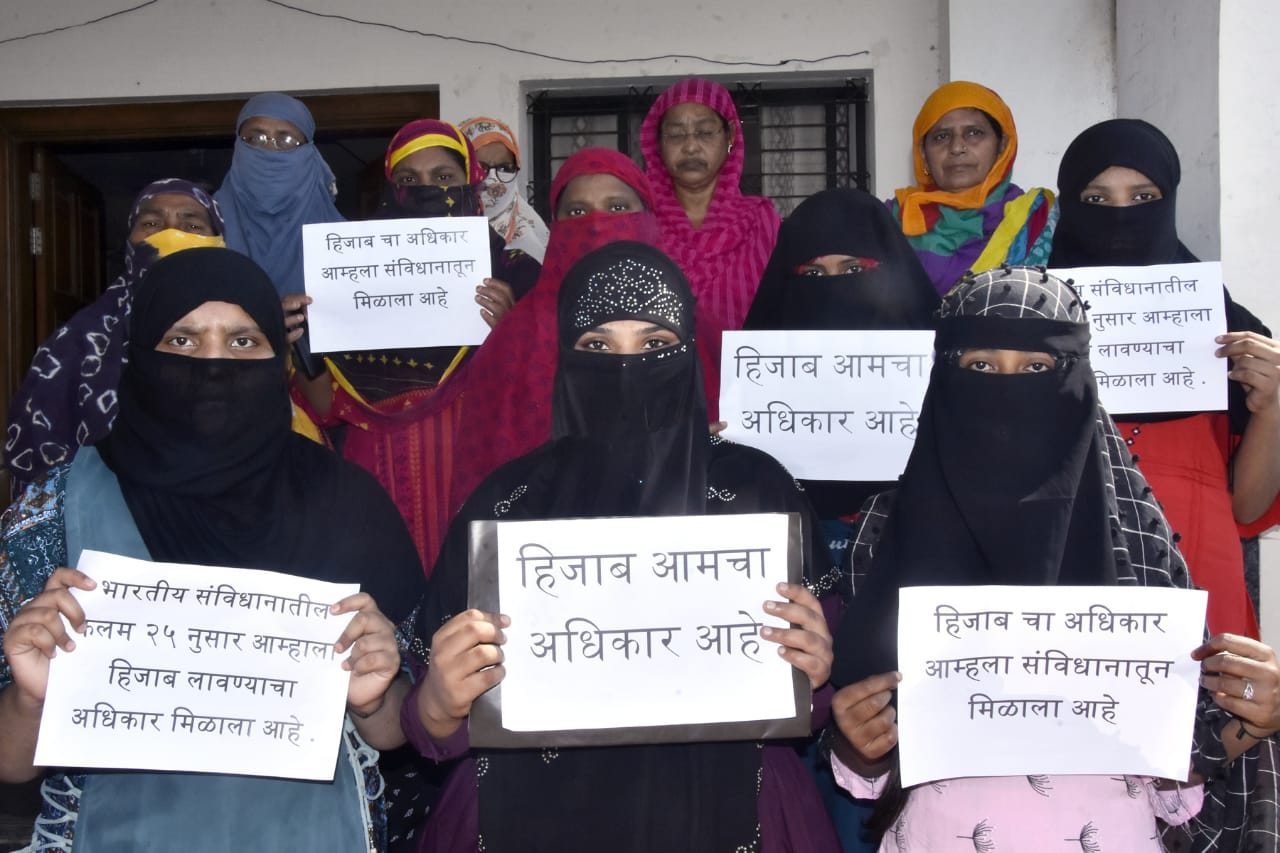 हिजाब चा अधिकार
आम्हला संविधानातून
मिळाला आहे
संविधातील
नुसार आम्हाला
लावण्याचा
मिळाला आहे .
हिजाब आमचा
अधिकार आहे
भारतीय संविधानातील
कलम २५ नुसार आम्हाला
हिजाब लावण्याचा
अधिकार मिळाला आहे .
हिजाब आमचा
अधिकार आहे
हिजाब चा अधिकार
आम्हला संविधानातून
मिळाला आहे